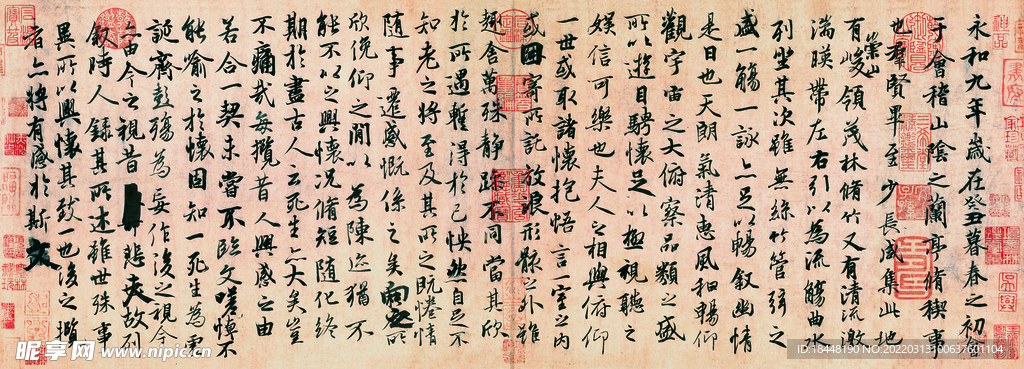 永和九年歲在癸丑暮春之初會
于會稽山陰之蘭亭脩稧事
也群賢畢至少長咸集此地
有崇山峻領茂林脩竹又有清流激
湍暎帶左右引以為流觴曲水
列坐其次雖無絲竹管弦之
盛一觴一詠亦足以暢敘幽情
是日也天朗氣清惠風和暢仰
觀宇宙之大俯察品類之盛
所以遊目騁懷足以極視聽之
娛信可樂也夫人之相與俯仰
一世或取諸懷抱悟言一室之內
或因寄所託放浪形骸之外雖
趣舍萬殊靜躁不同當其欣
於所遇蹔得於己怏然自足不
知老之將至及其所之既惓情
隨事遷感慨係之矣向之所
欣俛仰之閒以為陳迹猶不
能不以之興懷況脩短隨化終
期於盡古人云死生亦大矣豈
不痛哉每攬昔人興感之由
若合一契未嘗不臨文嗟悼不
能喻之於懷固知一死生為虛
誕齊彭殤為妄作後之視今
亦由今之視昔悲夫故列
敘時人錄其所述雖世殊事
異所以興懷其致一也後之攬
者亦將有感於斯文
昵享网 www.nipic.cn
ID:18448190 NO:20220313100637601104